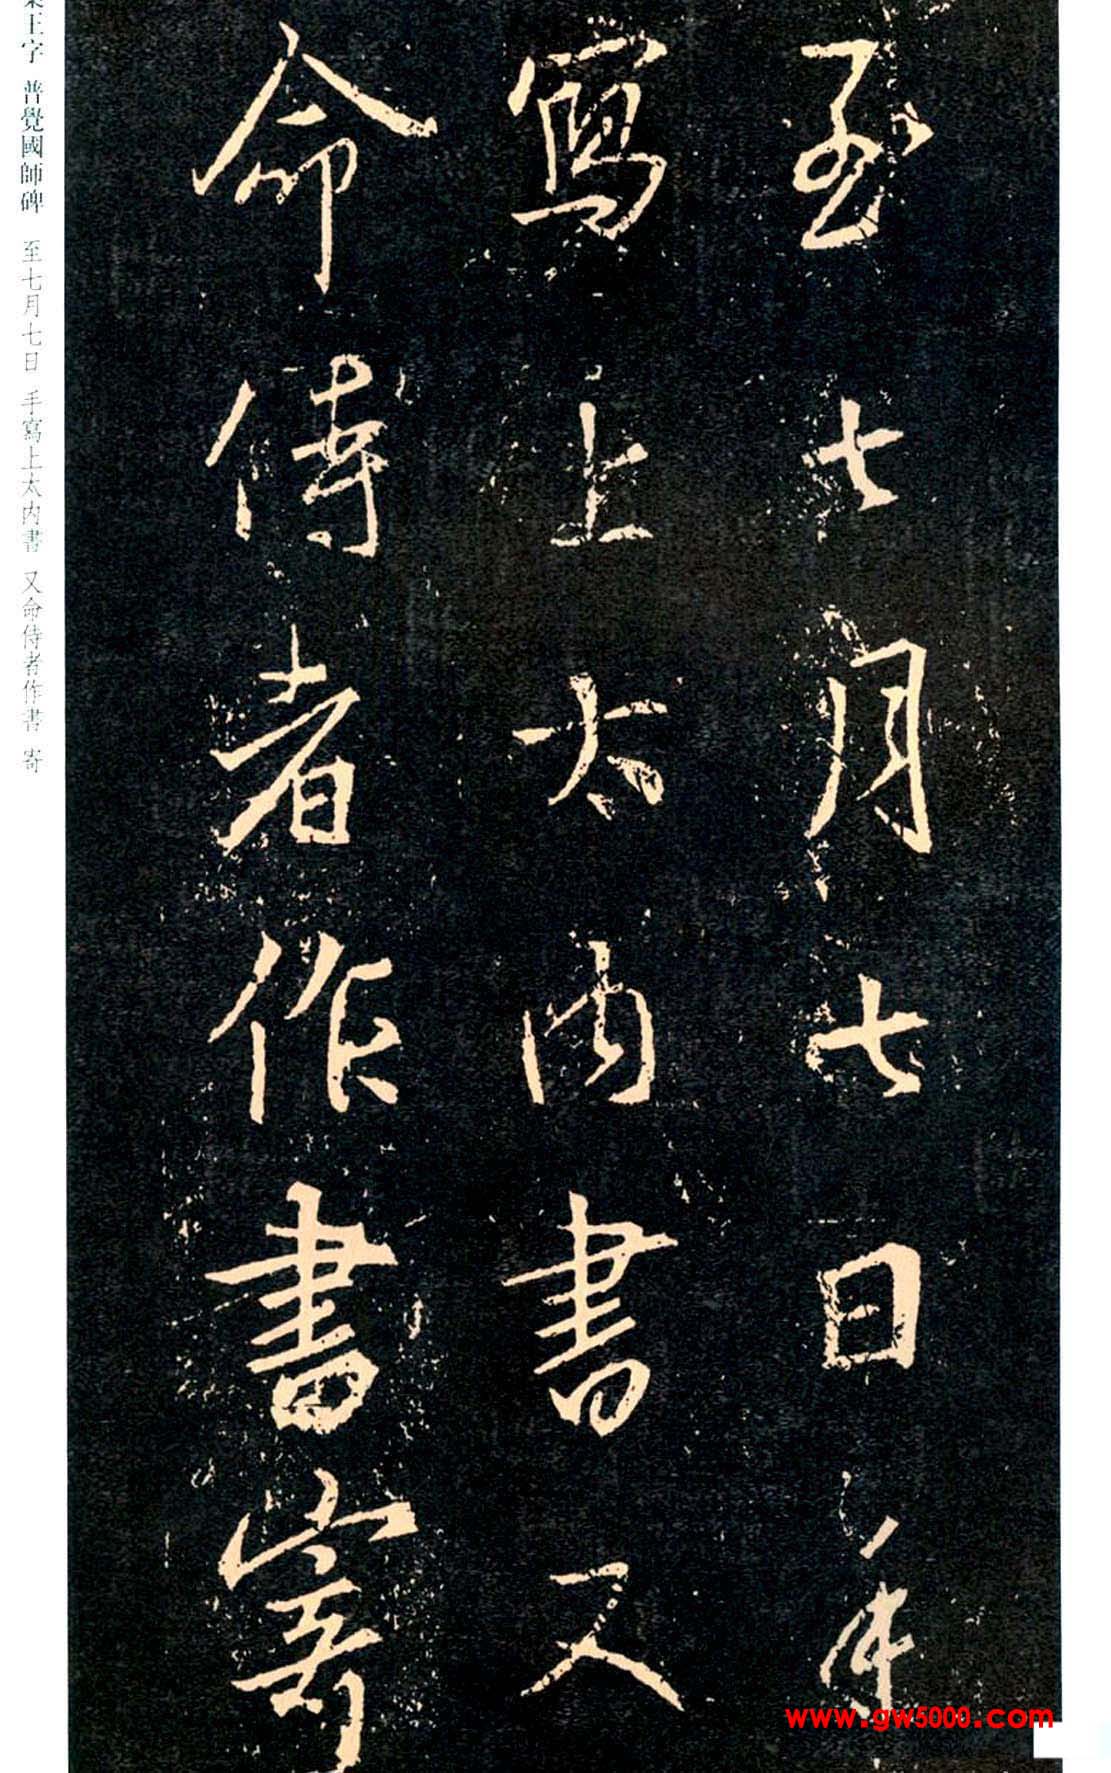 至七月七日手
寫上太内書又
命侍者作書寄
王字 普覺國師碑 至七月七日 手寫上太内書 又命侍者作書 寄
www.gw5000.com